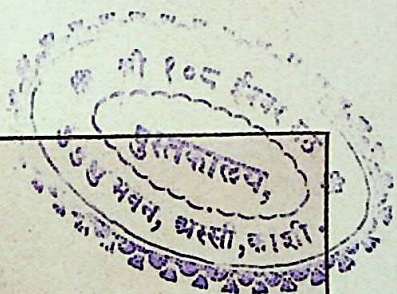 श्री १०८
पुस्तकालय,
मुमुक्षु भवन, अस्सी, काशी